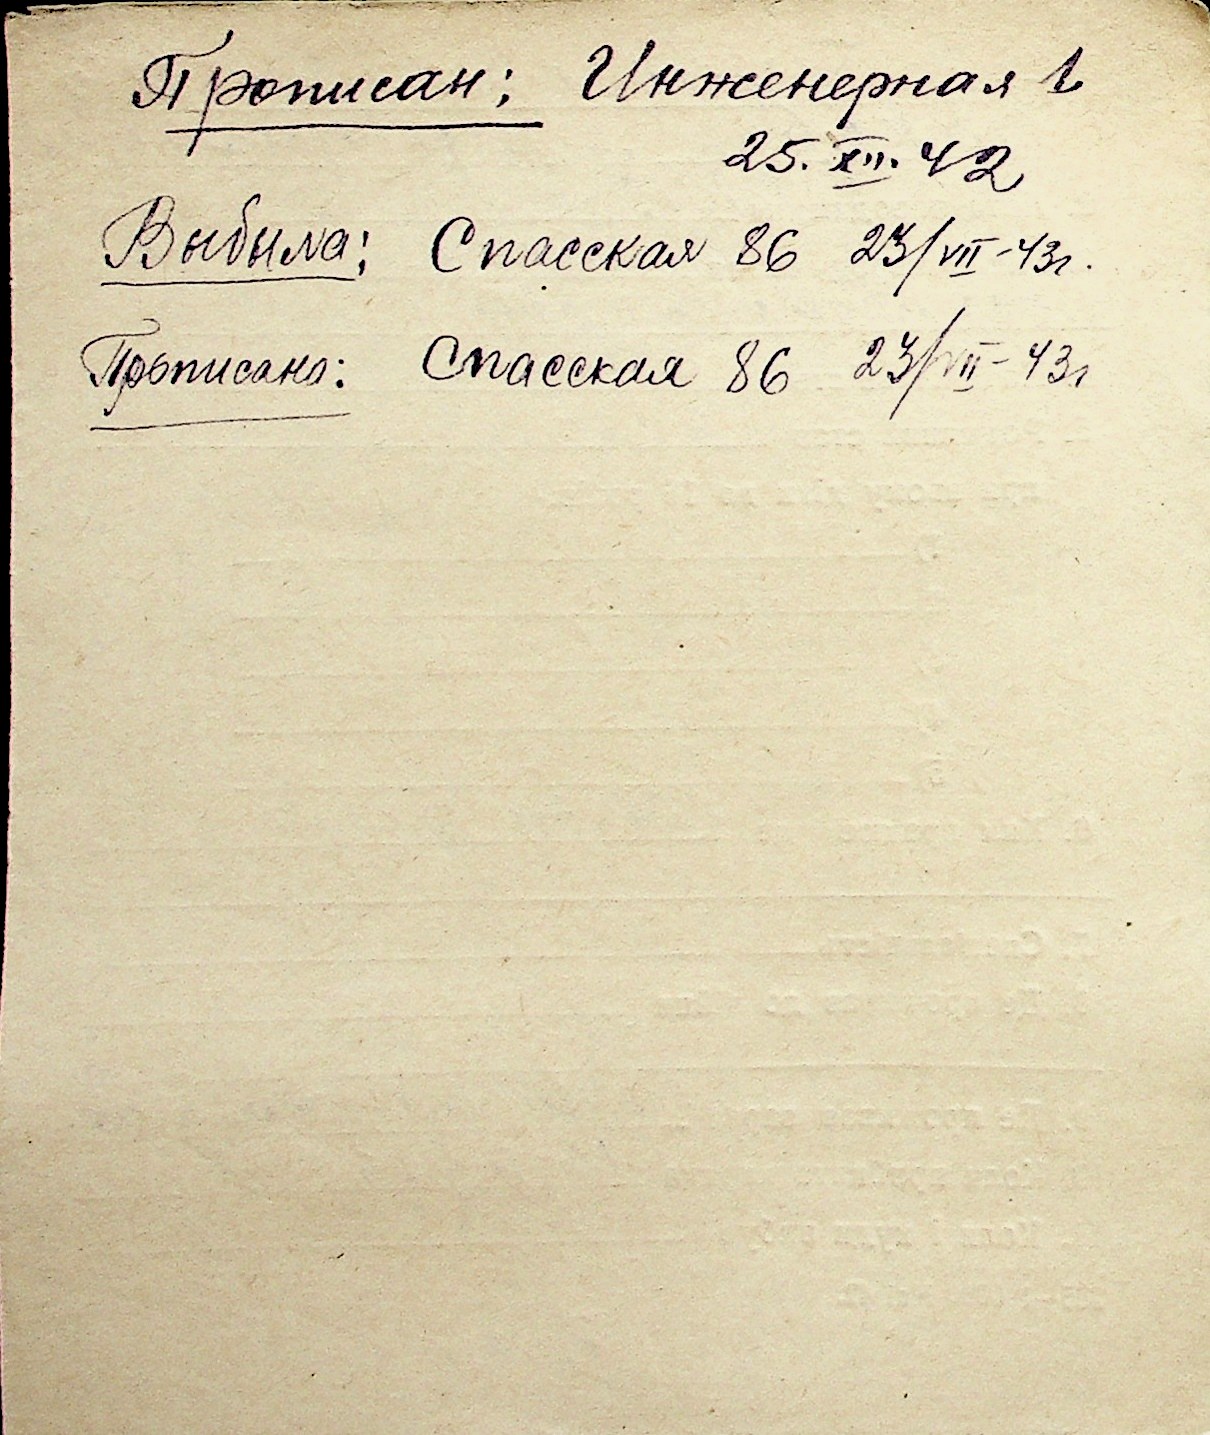 Прописан: Инженерная 1
25. XII. 42
Выбыла: Спасская 86 23/VII-43г.
Прописана: Спасская 86 23/VII-43г